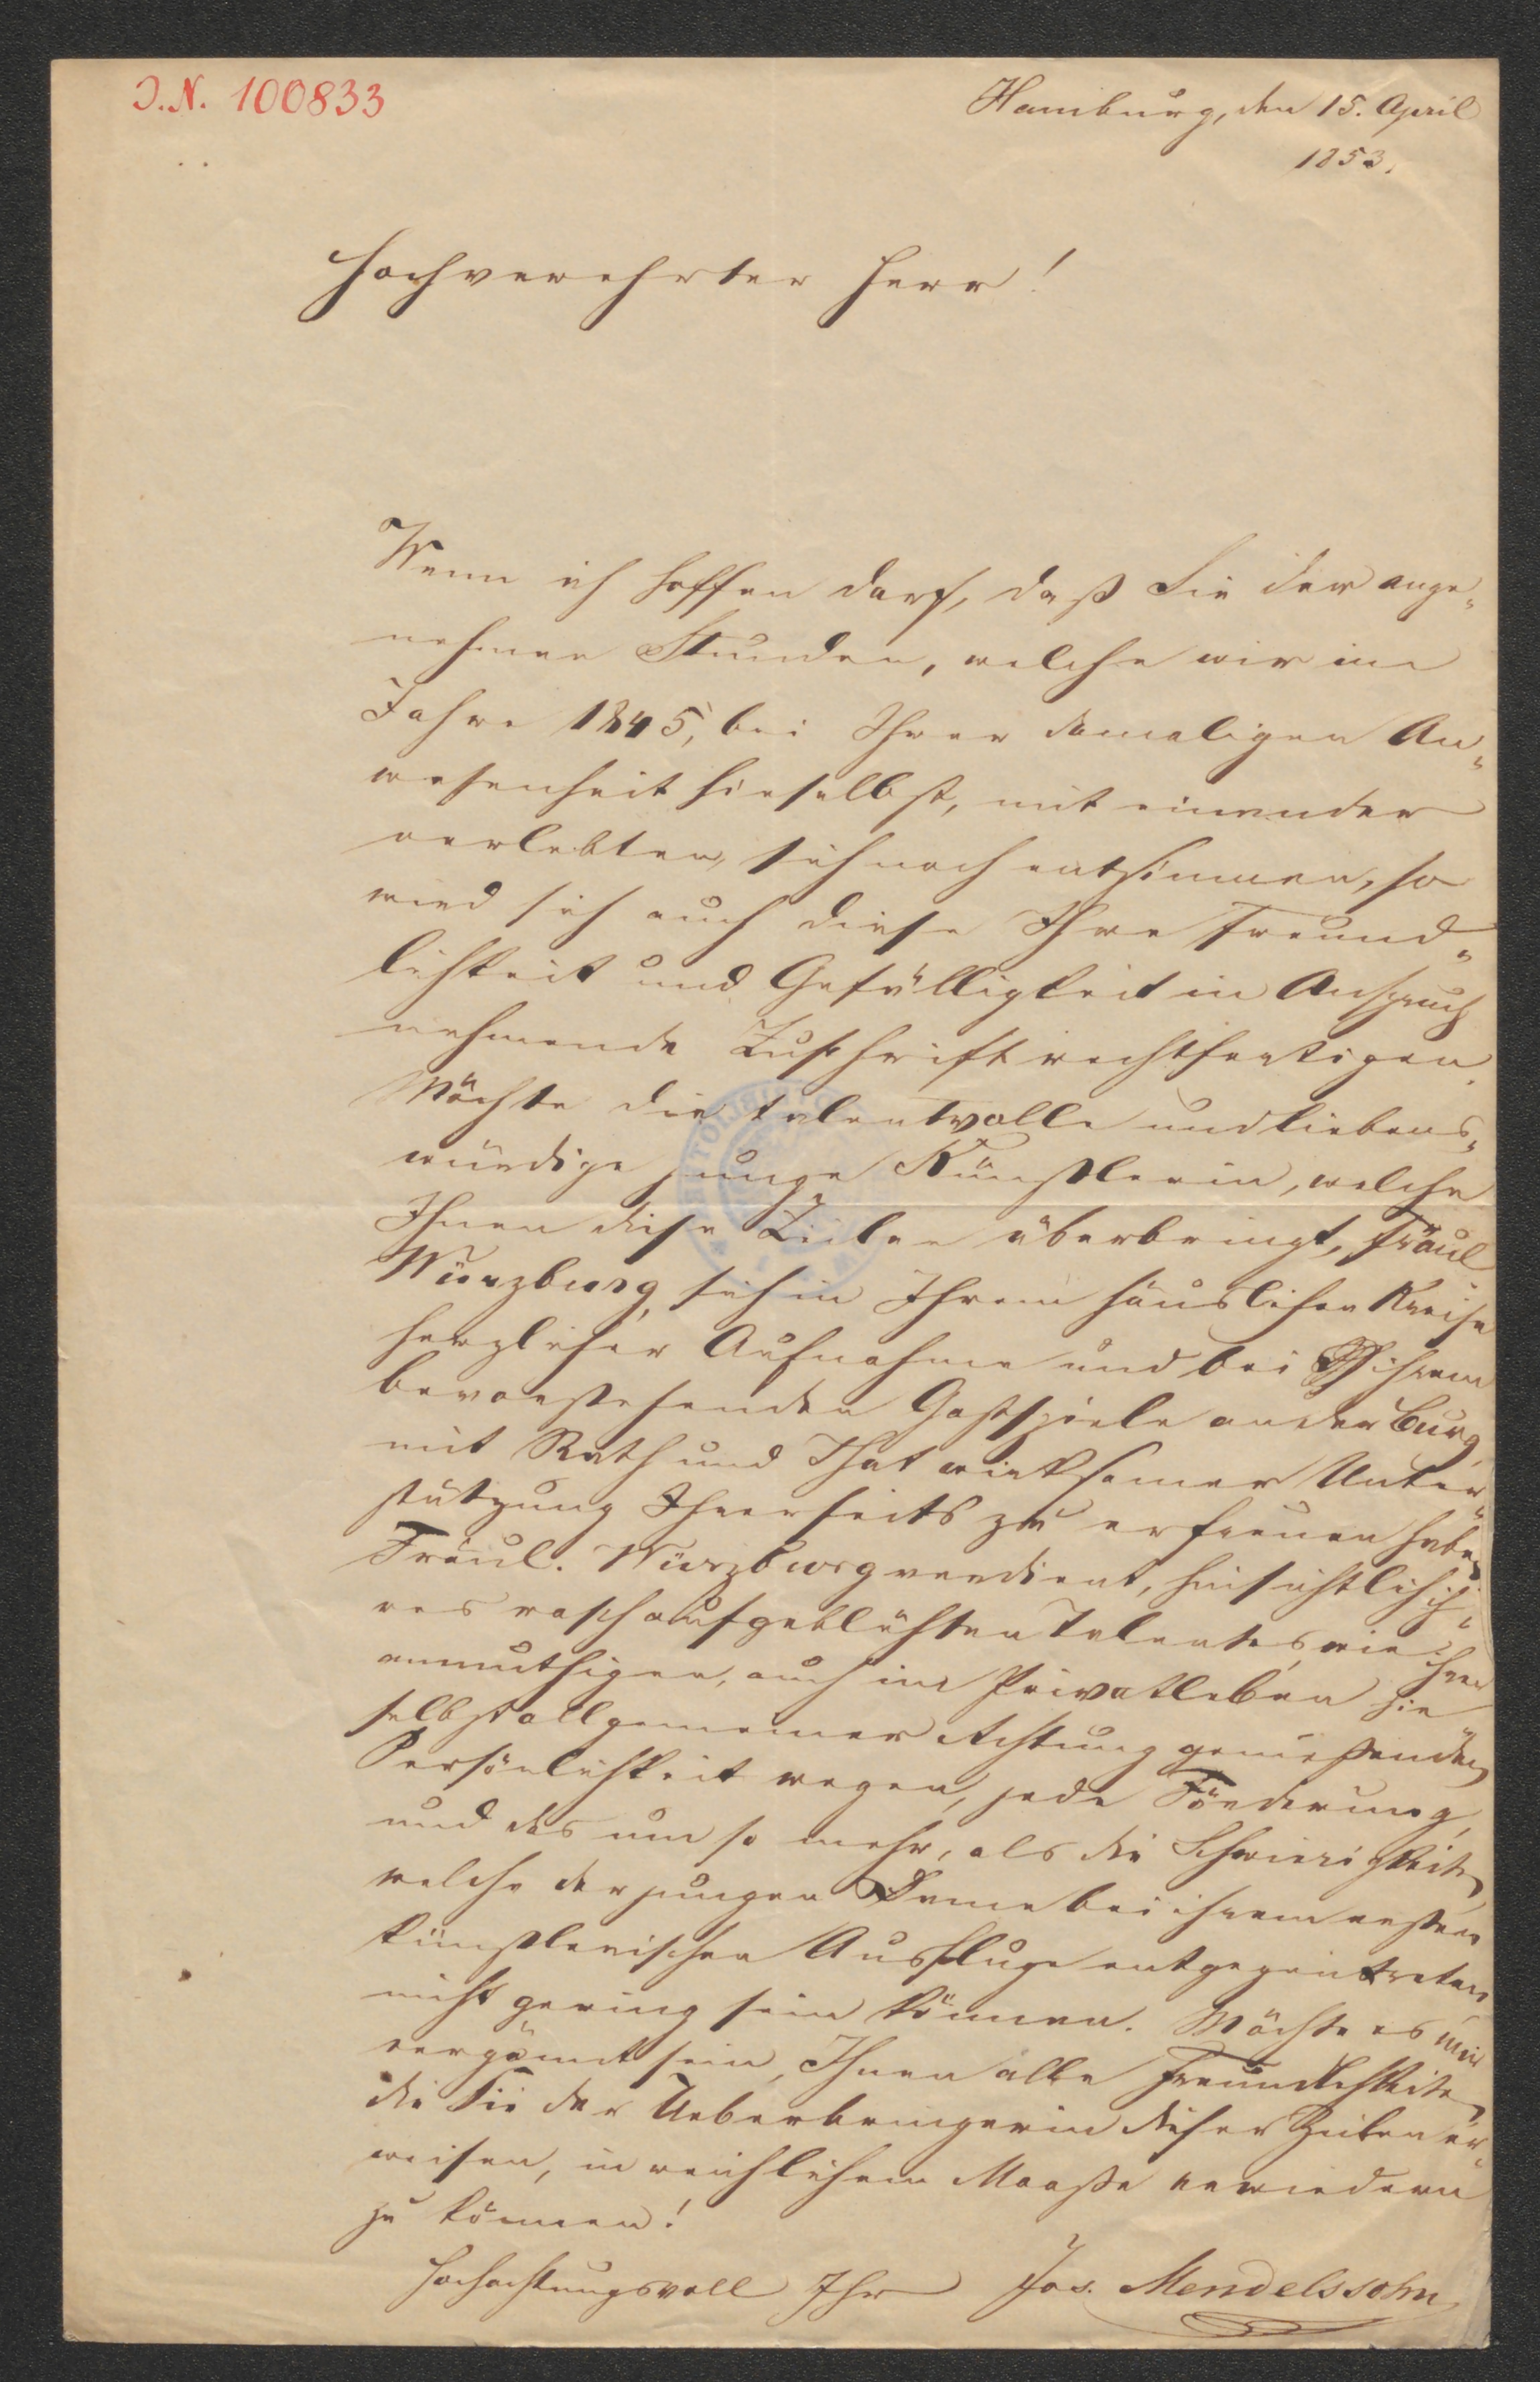 I.N. 100833
Hamburg, den 15. April
1853.
Hochverehrter Herr!
Wenn ich hoffen darf, daß Sie der ange-
nehmen Stunden, welche wir im
Jahre 1845, bei Ihrer damaligen An-
wesenheit hieselbst, mit einander
verlebten, sich noch entsinnen, so
wird sich auch diese Ihre Freund-
lichkeit und Gefälligkeit in Anspruch
nehmende Zuschrift rechtfertigen.
Möchte die talentvolle und liebens-
würdige junge Künstlerin, welche
Ihnen diese Zeilen überbringt, Fräul.
Würzburg, sich in Ihrem häuslichen Kreise
herzlicher Aufnahme und bei ihrem
bevorstehenden Gastspiele an der Burg
mit Rath und That wirksamer Unter-
stützung Ihrerseits zu erfreuen haben
Fräul. Würzburg verdient, hinsichtlich ih-
res rasch aufgeblühten Talentes, wie ihrer
anmuthigen, auch im Privatleben hie
selbst allgemeiner Achtung genießenden
Persönlichkeit wegen, jede Förderung,
und das um so mehr, als die Schwierigkeiten,
welche der jungen Dame bei ihrem ersten
künstlerischen Ausfluge entgegentreten
nicht gering sein können. Möchte es mir
vergönnt sein, Ihnen alle Freundlichkeiten
die Sie der Ueberbringerin dieser Zeilen er-
weisen, in reichlichem Maaße erwiedern
zu können!
Hochachtungsvoll Ihr Jos. Mendelssohn